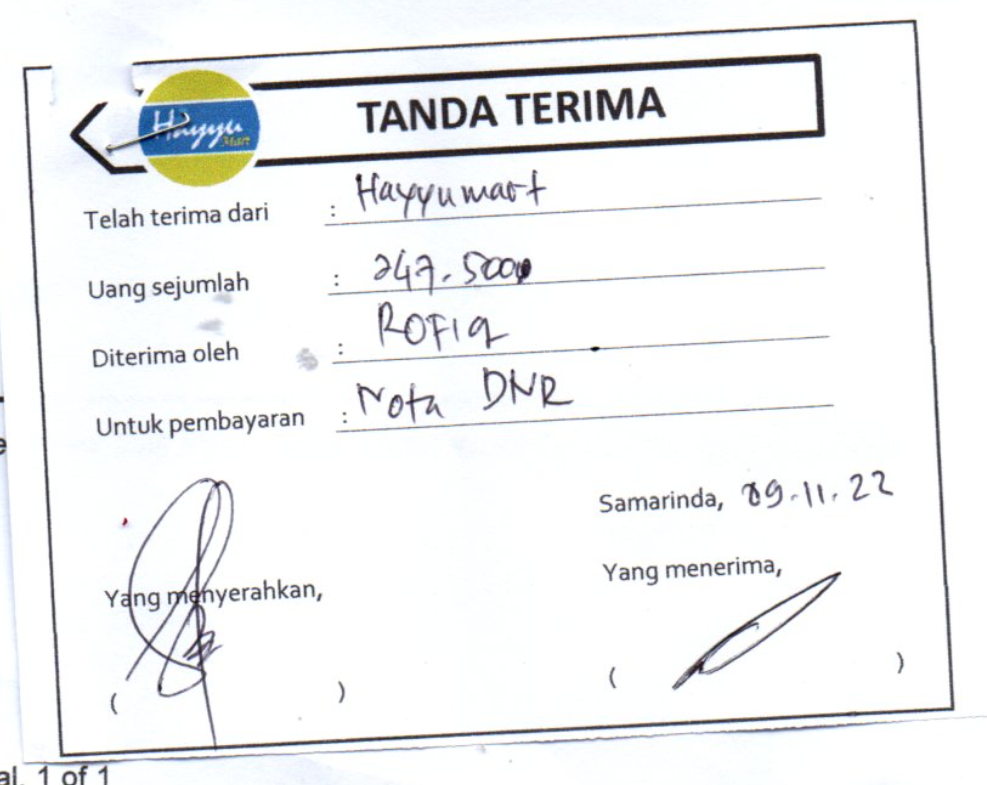 Hayyu
Mart
TANDA TERIMA
Telah terima dari : Hayyumart
Uang sejumlah : 247.500
Diterima oleh : ROFIQ
Untuk pembayaran : Nota DNR
Samarinda, 09.11.22
Yang menyerahkan,
Yang menerima,
( )
( )
al. 1 of 1